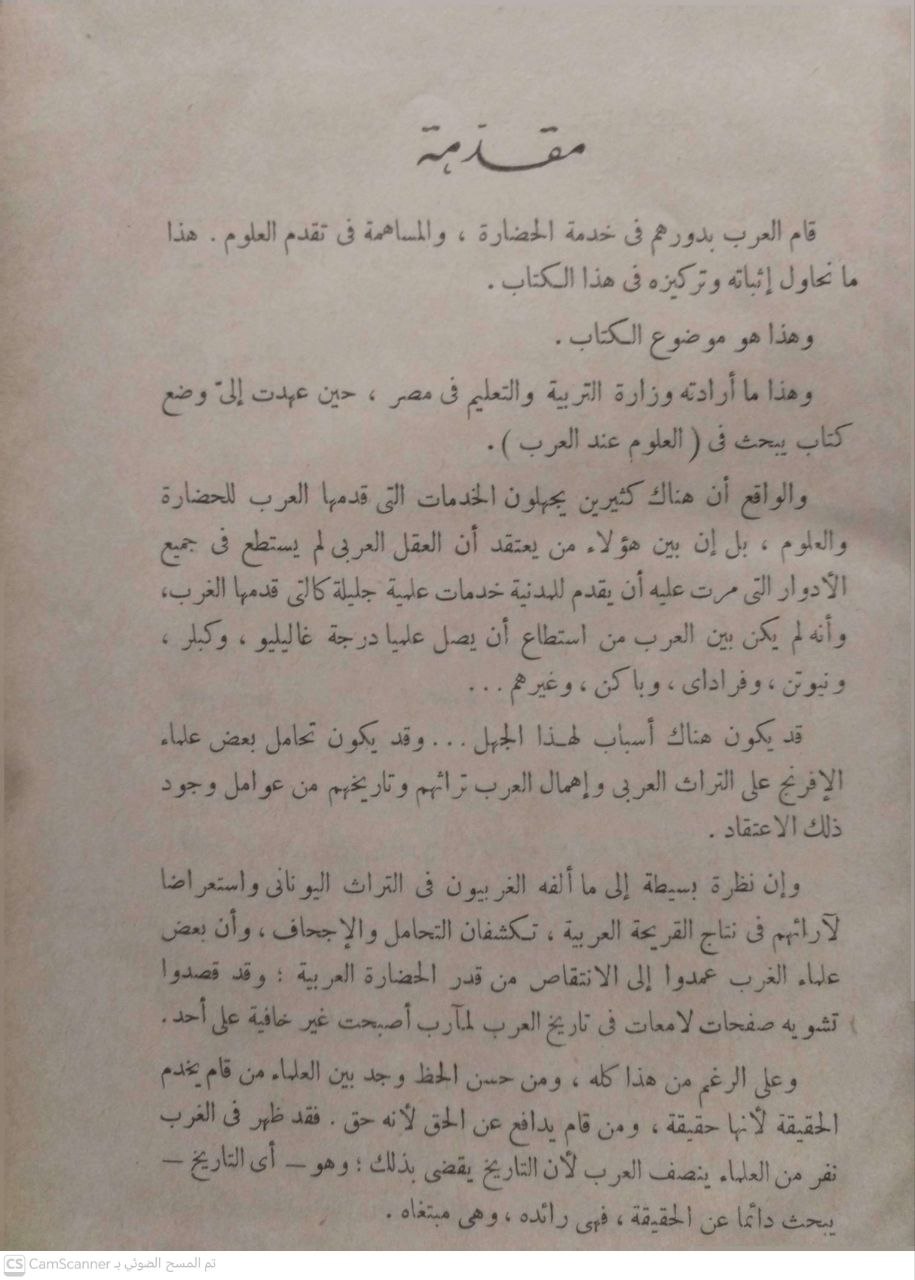 مقدمة
قام العرب بدورهم فى خدمة الحضارة ، والمساهمة فى تقدم العلوم . هذا
ما نحاول إثباته وتركيزه فى هذا الكتاب .
وهذا هو موضوع الكتاب .
وهذا ما أرادته وزارة التربية والتعليم فى مصر ، حين عهدت إلىّ وضع
كتاب يبحث فى ( العلوم عند العرب ) .
والواقع أن هناك كثيرين يجهلون الخدمات التى قدمها العرب للحضارة
والعلوم ، بل إن بين هؤلاء من يعتقد أن العقل العربى لم يستطع فى جميع
الأدوار التى مرت عليه أن يقدم للمدنية خدمات علمية جليلة كالتى قدمها الغرب،
وأنه لم يكن بين العرب من استطاع أن يصل علميا درجة غاليليو ، وكبلر ،
ونيوتن ، وفراداى ، وباكن ، وغيرهم ...
قد يكون هناك أسباب لهذا الجهل ... وقد يكون تحامل بعض علماء
الإفرنج على التراث العربى وإهمال العرب تراثهم وتاريخهم من عوامل وجود
ذلك الاعتقاد .
وإن نظرة بسيطة إلى ما ألفه الغربيون فى التراث اليونانى واستعراضا
لآرائهم فى نتاج القريحة العربية ، تكشفان التحامل والإجحاف ، وأن بعض
علماء الغرب عمدوا إلى الانتقاص من قدر الحضارة العربية ؛ وقد قصدوا
تشويه صفحات لامعات فى تاريخ العرب لمآرب أصبحت غير خافية على أحد .
وعلى الرغم من هذا كله ، ومن حسن الحظ وجد بين العلماء من قام يخدم
الحقيقة لأنها حقيقة ، ومن قام يدافع عن الحق لأنه حق . فقد ظهر فى الغرب
نفر من العلماء ينصف العرب لأن التاريخ يقضى بذلك ؛ وهو — أى التاريخ —
يبحث دائما عن الحقيقة ، فهى رائده ، وهى مبتغاه .
CS CamScanner تم المسح الضوئي بـ